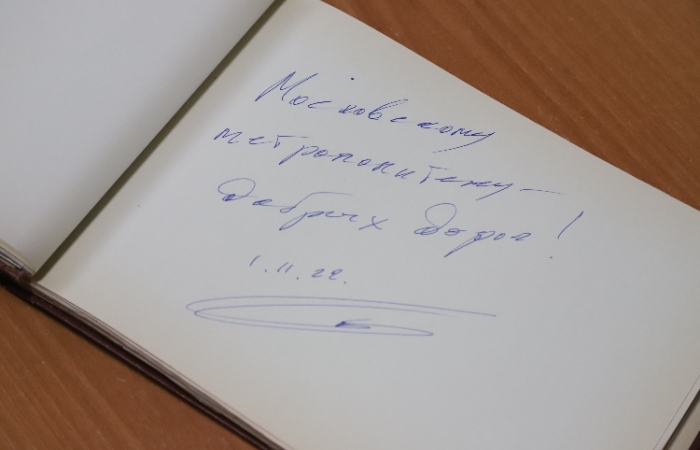 Московскому
метрополитену –
Добрых дорог!
1.11.22.